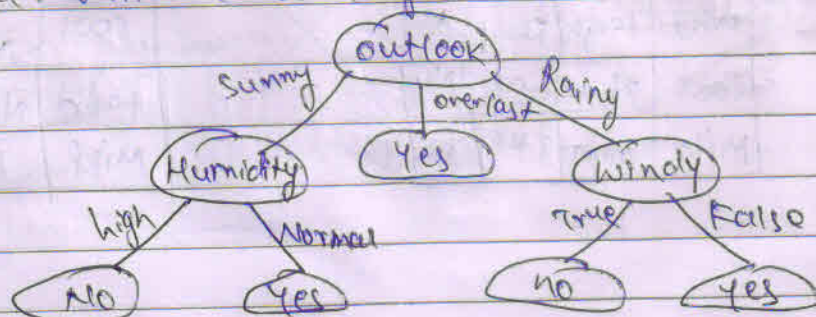 outlook
Sunny overlast Rainy
Humidity Yes Windy
high Normal True False
No Yes no yes